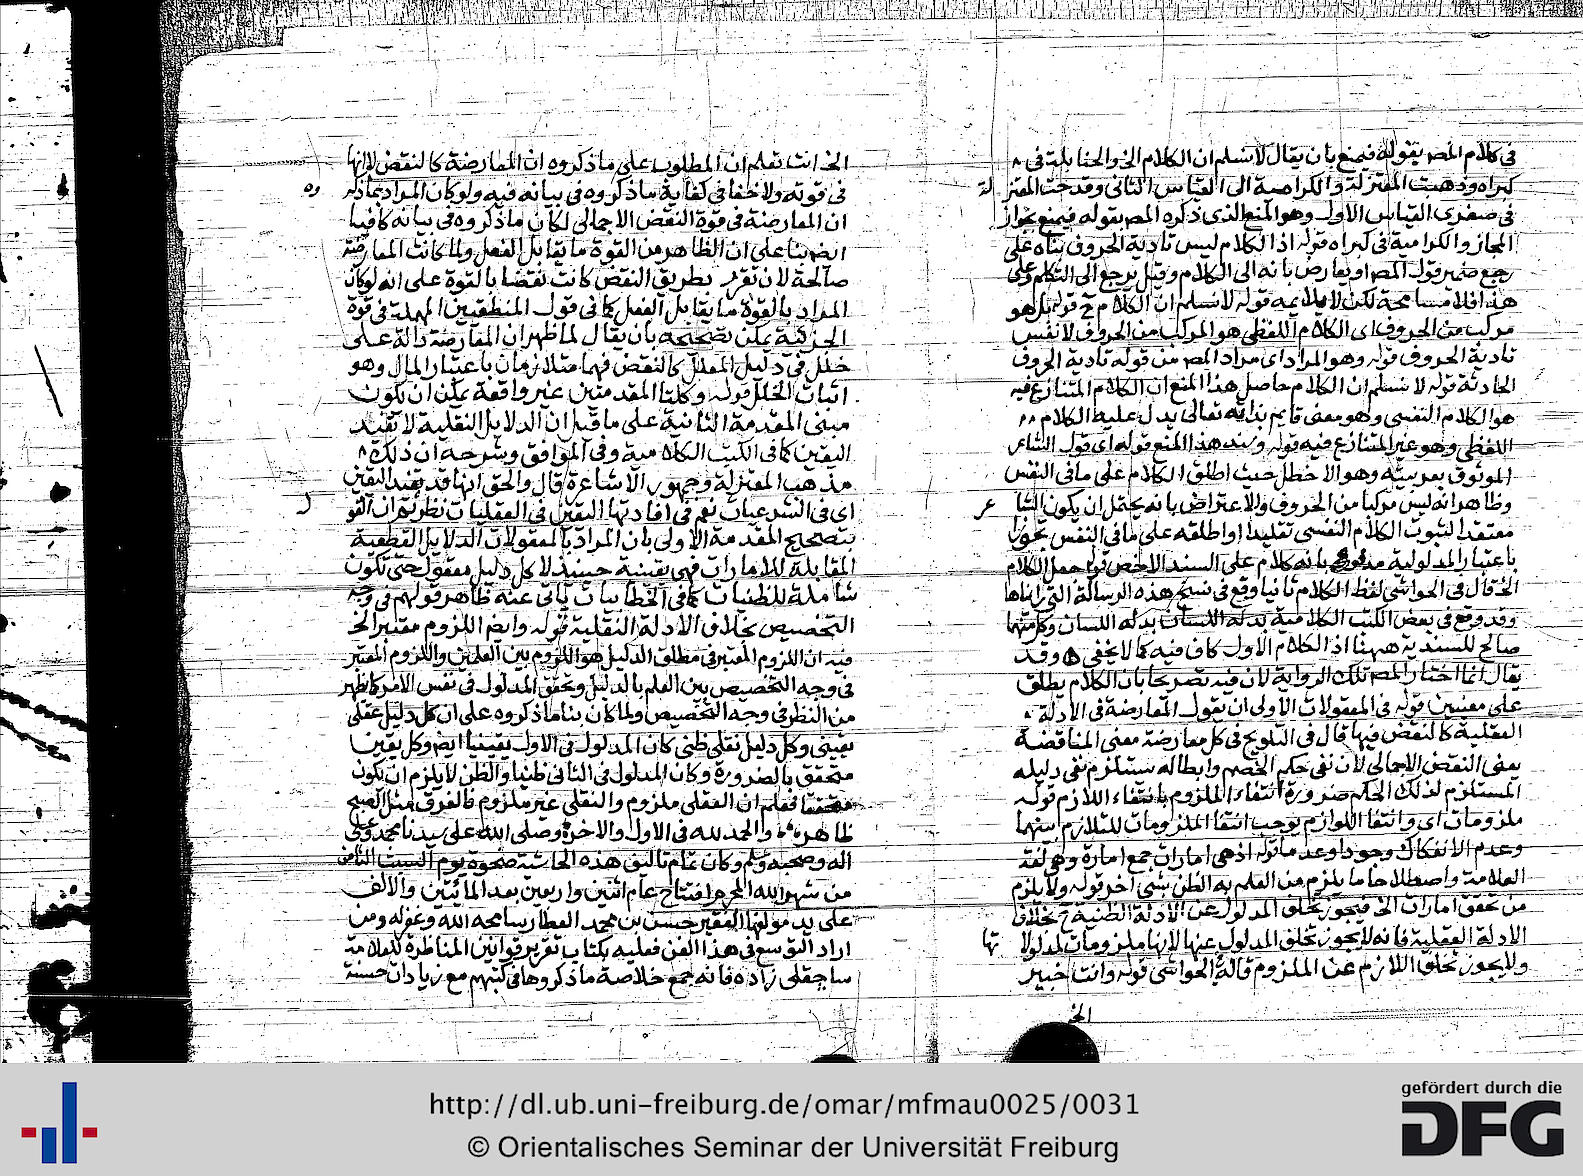 في كلام المص بقوله فيمنع بان يقال لا نسلم ان الكلام الخ والحنابلة في
كبراه وذهبت المعتزلة والكرامية الى القياس الثاني وقدحت المعتز
لة
في صغرى القياس الاول وهو المنع الذي ذكره المص بقوله فيمنع بجواز
المجاز والكرامية في كبراه قوله اذ الكلام ليس تادية الحروف بناه على
رجع ضمير قول المص او يعارض بانه الى الكلام وقيل يرجع الى التكلم وعلى
هذا فلا مسامحة لكن لا يلايمه قوله لا نسلم ان الكلام قوله بل هو
مركب من الحروف اى الكلام اللفظي هو المركب من الحروف لا نفس
تادية الحروف قوله وهو المراد اى مراد المص من قوله تادية الحروف
الحادثة قوله لا نسلم ان الكلام حاصل هذا المنع ان الكلام المتنازع فيه
هو الكلام النفسي وهو معنى قايم بذاته تعالى يدل عليه الكلام
اللفظي وهو غير المتنازع فيه قوله وسند هذا المنع قوله اى قول الشاعر
الموثوق بعربيته وهو الاخطل حيث اطلق الكلام على ما في النفس
وظاهر انه ليس مركبا من الحروف والاعتراض بانه يحتمل ان يكون الشا
عر
معتقدا لثبوت الكلام النفسي تقليدا او اطلقه على ما في النفس تجوزا
باعتبار المدلولية مدفوع بانه كلام على السند الاخص قوله حمل الكلام
الخ قال في الحواشي لفظ الكلام ثانيا وقع في نسخ هذه الرسالة التي رايناها
وقد وقع في بعض الكتب الكلامية بدله اللسان بدله اللسان وكل منهما
صالح للسندية ههنا اذ الكلام الاول كاف فيه كما لا يخفى ه وقد
يقال انما اختار المص تلك الرواية لان فيه تصريحا بان الكلام يطلق
على معنيين قوله في المعقولات الاولى ان يقول المعارضة في الادلة
العقلية كالنقض فيها قال في التلويح في كل معارضة معنى المناقضة
يعني النقض الاجمالي لان نفى حكم الخصم وابطاله يستلزم نفى دليله
المستلزم لذلك الحكم ضرورة انتفاء الملزوم بانتفاء اللازم قوله
ملزومات اى وانتفا اللوازم يوجب انتفا الملزومات للتلازم بينهما
وعدم الانفكاك وجودا وعدما قوله اذ هي امارات جمع امارة وهي لغة
العلامة واصطلاحا ما يلزم من العلم به الظن بشيء اخر قوله ولا يلزم
من تحقق امارات الخ فيجوز تخلق المدلول عن الادلة الظنية بخلاف
الادلة العقلية فانه لا يجوز تخلق المدلول عنها لانها ملزومات لمدلولا
تها
ولا يجوز تخلق اللازم عن الملزوم قاله في الحواشي قوله وانت خبير
الخ
الخ انت تعلم ان المطلوب على ما ذكروه ان المعارضة كالنقض لا انها
في قوته ولا خفا في كفاية ما ذكروه في بيانه فيه ولو كان المراد بما ذكر
وه
ان المعارضة في قوة النقض الاجمالي لكان ما ذكروه في بيانه كافيا
ايضا بنا على ان الظاهر من القوة ما يقابل الفعل ولما كانت المعارضة
صالحة لان تقرر بطريق النقض كانت نقضا بالقوة على انه لو كان
المراد بالقوة ما يقابل الفعل كما في قول المنطقيين المهملة في قوة
الجزئية يمكن تصحيحه بان يقال لما ظهر ان المعارضة دالة على
خلل في دليل المعلل كالنقض فهما متلازمان باعتبار المال وهو
اثبات الخلل قوله وكلتا المقدمتين غير واقعة يمكن ان يكون
مبنى المقدمة الثانية على ما قيل ان الدلايل النقلية لا تفيد
اليقين كما في الكتب الكلامية وفي المواقف وشرحه ان ذلك
مذهب المعتزلة وجمهور الاشاعرة قال والحق انها قد تفيد اليقين
اى في الشرعيات نعم في افادتها اليقين في العقليات نظر ثم ان القو
ل
بتصحيح المقدمة الاولى بان المراد بالمعقولات الدلايل القطعية
المقابلة للامارات فهي يقينية حينئذ لا كل دليل معقول حتى تكون
شاملة للظنيات كما في الخطابيات يابى عنه ظاهر قولهم في وجه
التخصيص بخلاف الادلة النقلية قوله وايضا اللزوم معتبر الخ
فيه ان اللزوم المعتبر في مطلق الدليل هو اللزوم بين العلمين واللزوم المعتبر
في وجه التخصيص بين العلم بالدليل وتحقق المدلول في نفس الامر كما ظهر
من النظر في وجه التخصيص ولما كان بنا ما ذكروه على ان كل دليل عقلي
يقيني وكل دليل نقلي ظني كان المدلول في الاول يقينيا ايضا وكل يقين
متحقق بالضرورة وكان المدلول في الثاني ظنيا والظن لا يلزم ان يكون
متحققا فعلم ان العقلي ملزوم والنقلي غير ملزوم فالفرق مثل الصبح
ظاهر والحمد لله في الاول والاخرة وصلى الله على سيدنا محمد وعلى
اله وصحبه وسلم وكان تمام تاليف هذه الحاشية ضحوة يوم السبت الثامن
من شهر الله المحرم افتتاح عام اثنين واربعين بعد المائتين والالف
على يد مولفها الفقير حسن بن محمد العطار سامحه الله وغفر له ومن
اراد التوسع في هذا الفن فعليه بكتاب تقرير قوانين المناظرة للعلامة
ساجقلي زاده فانه جمع خلاصة ما ذكروها في كتبهم مع زيادات حسنة
http://dl.ub.uni-freiburg.de/omar/mfmau0025/0031
© Orientalisches Seminar der Universität Freiburg
gefördert durch die
DFG